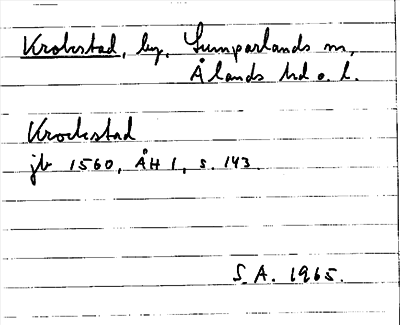 Krokstad, by, Lumparlands sn,
Ålands hd o. l.
Krockstad
jb 1560, ÅH 1, s. 143.
S. A. 1965.